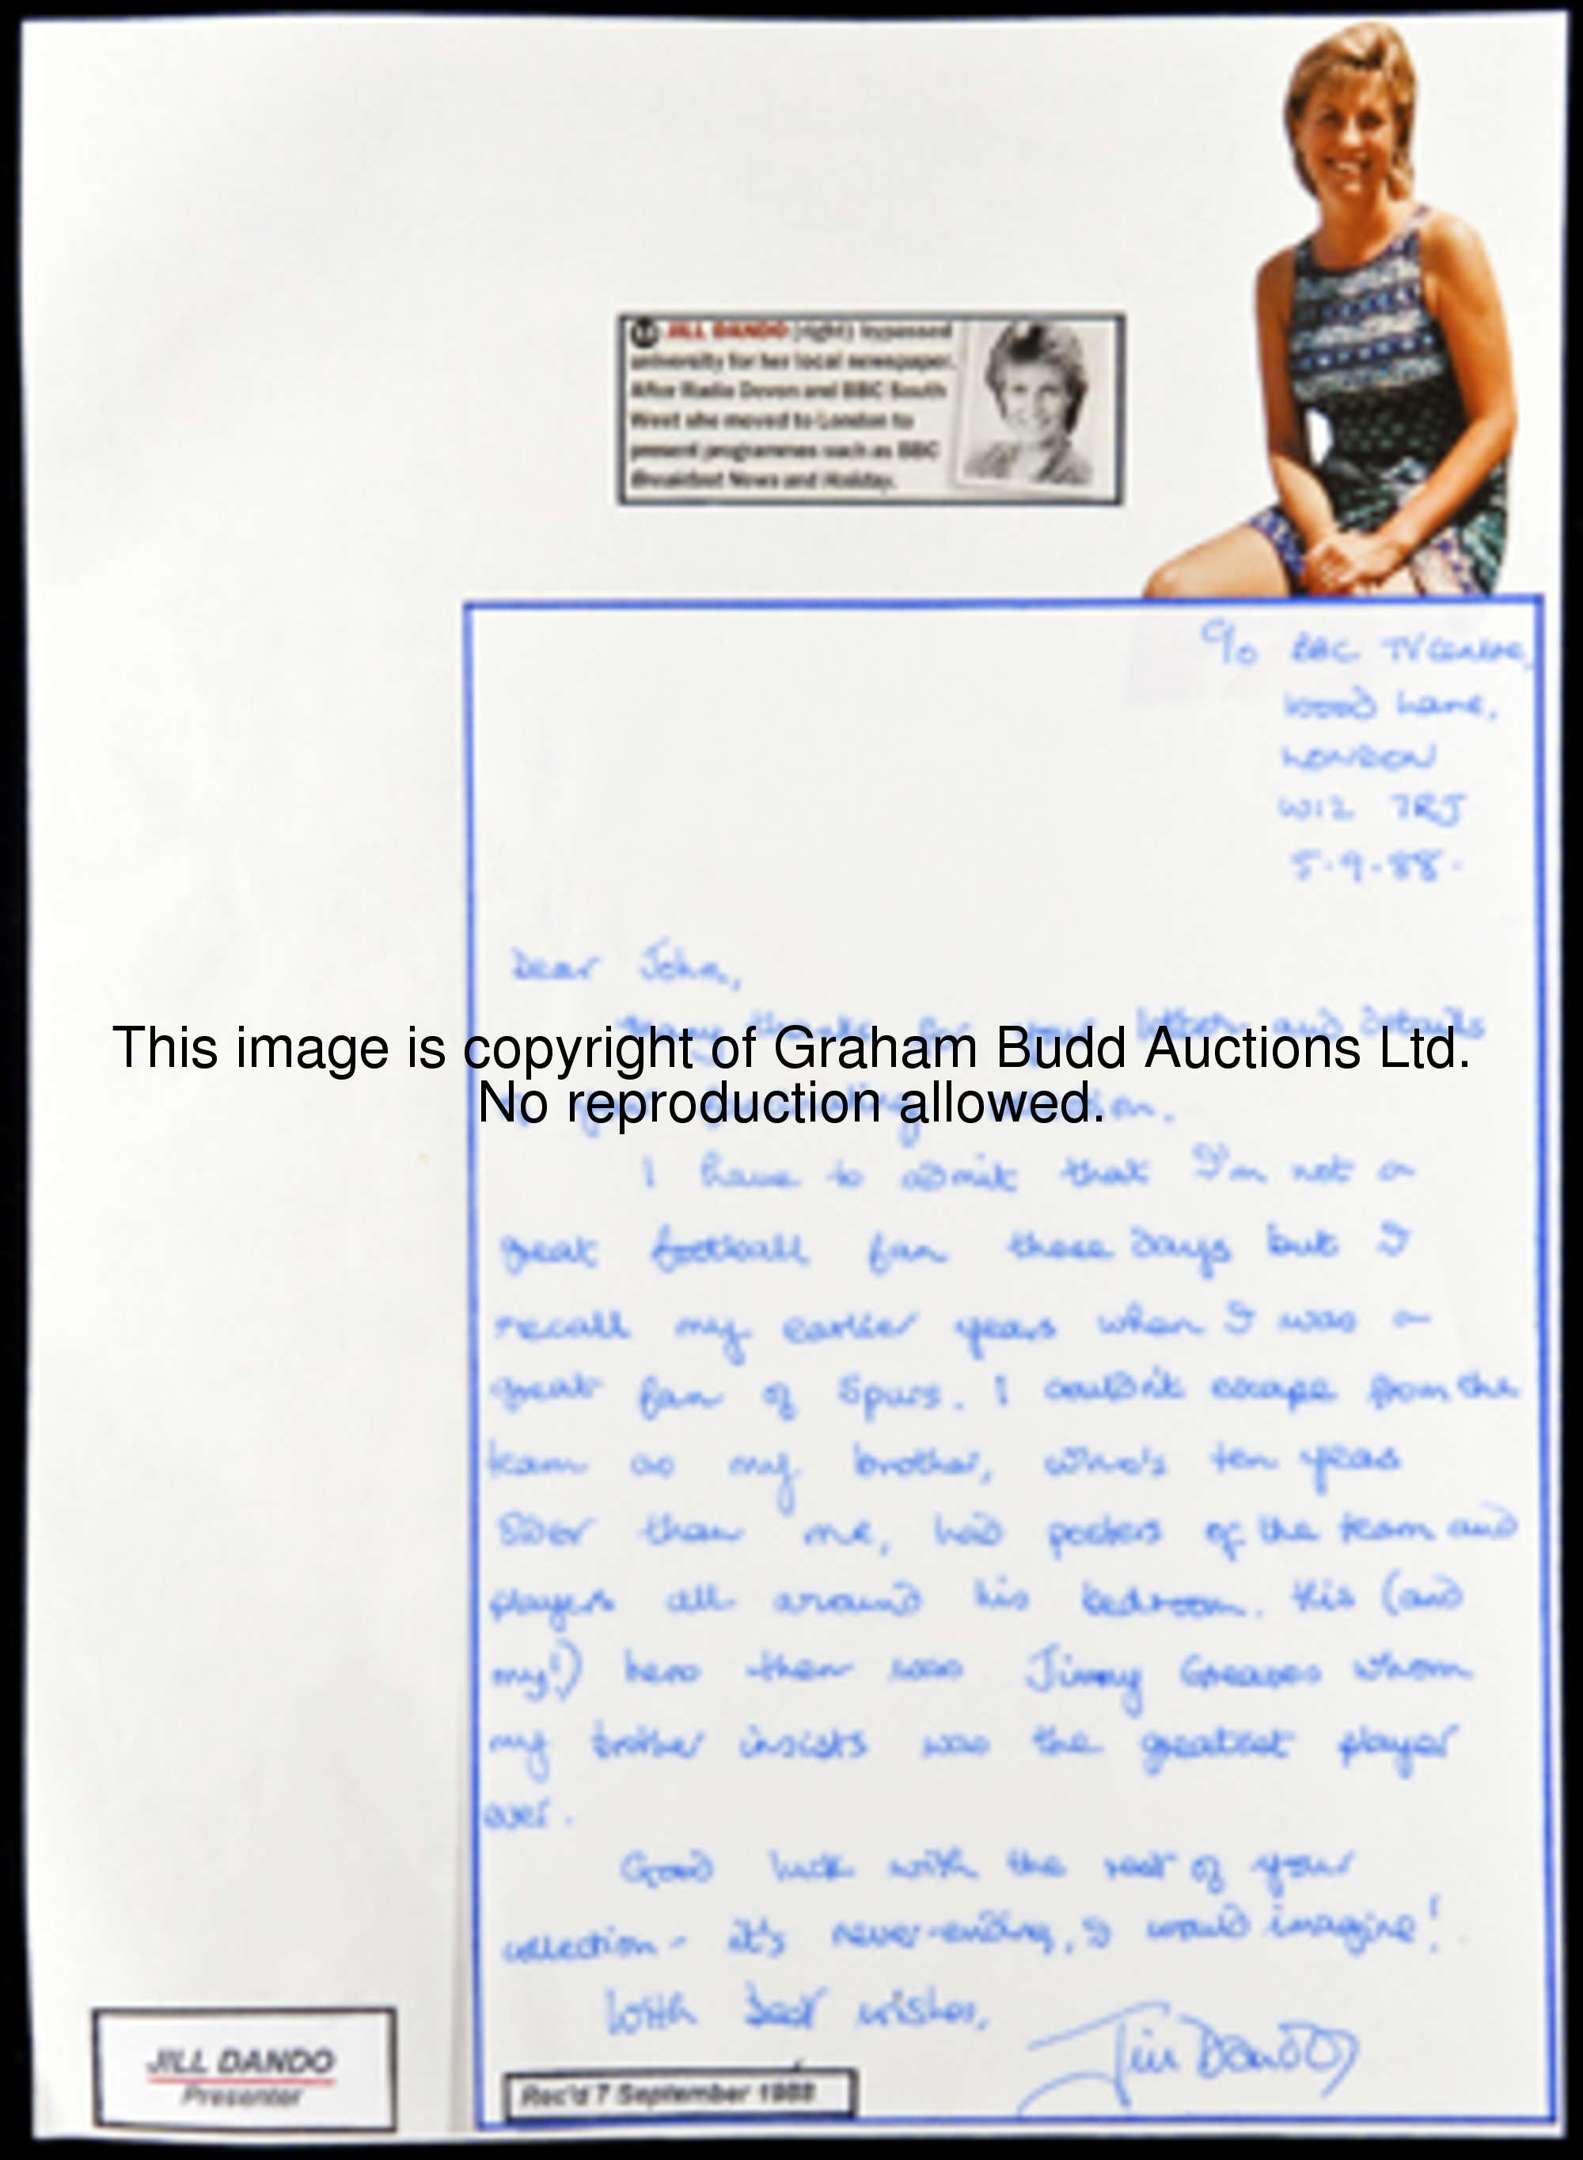 JILL DANDO (right) bypassed
university for her local newspaper.
After Radio Devon and BBC South
West she moved to London to
present programmes such as BBC
Breakfast News and Holiday.
c/o BBC TV Centre,
Wood Lane,
LONDON
W12 7RJ
5.9.88.
Dear John,
Many thanks for your letter and details
This image is copyright of Graham Budd Auctions Ltd.
No reproduction allowed.
I have to admit that I'm not a
great football fan these days but I
recall my earlier years when I was a
great fan of Spurs. I couldn't escape from the
team as my brother, who's ten years
older than me, had posters of the team and
players all around his bedroom. His (and
my!) hero then was Jimmy Greaves whom
my brother insists was the greatest player
ever.
Good luck with the rest of your
collection - it's never-ending, I would imagine!
With best wishes,
Jill Dando
JILL DANDO
Presenter
Rec'd 7 September 1988